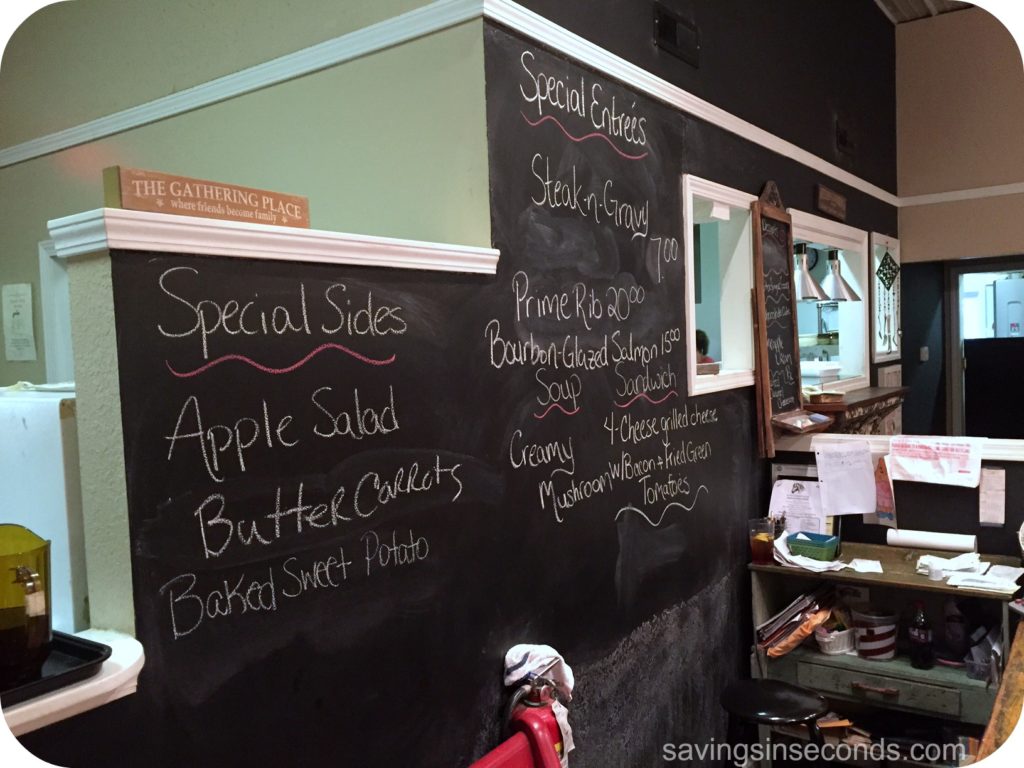 THE GATHERING PLACE
where friends become family
Special Sides
Apple Salad
Butter Carrots
Baked Sweet Potato
Special Entrées
Steak-n-Gravy
7.00
Prime Rib 20.00
Bourbon-Glazed Salmon 15.00
Soup
Creamy
Mushroom
Sandwich
4 Cheese grilled cheese
w/Bacon + Fried Green
Tomatoes
savingsinseconds.com